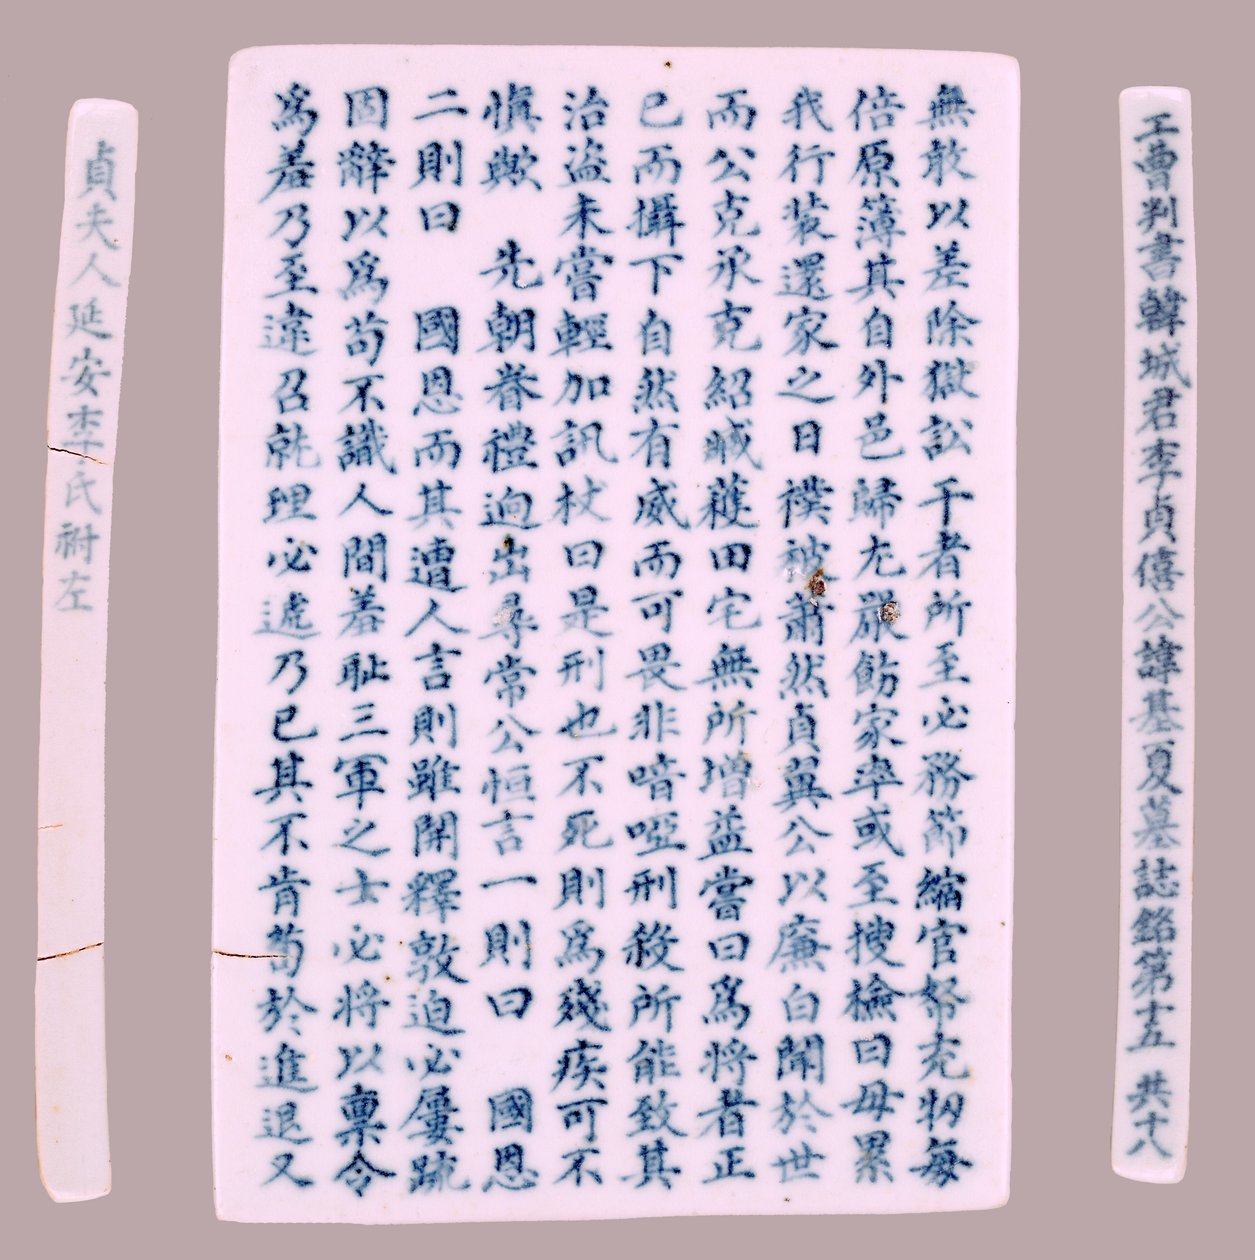 工曹判書韓城君李貞僖公諱基夏墓誌銘第十五 共十八
無敢以差除獄訟干者所至必務節縮官帑充牣每
倍原簿其自外邑歸尤嚴飭家率或至搜檢曰毋累
我行裝還家之日襆被蕭然貞翼公以廉白聞於世
而公克承克紹臧薙田宅無所增益嘗曰爲將者正
已而攝下自然有威而可畏非喑啞刑殺所能致其
治盜未嘗輕加訊杖曰是刑也不死則爲殘疾可不
愼歟 先朝眷禮逈出尋常公恒言一則曰 國恩
二則曰 國恩而其遭人言則雖開釋敦迫必屢疏
固辭以爲苟不識人間羞恥三軍之士必將以稟令
爲羞乃至違召就理必遞乃已其不肯苟於進退又
貞夫人延安李氏祔左